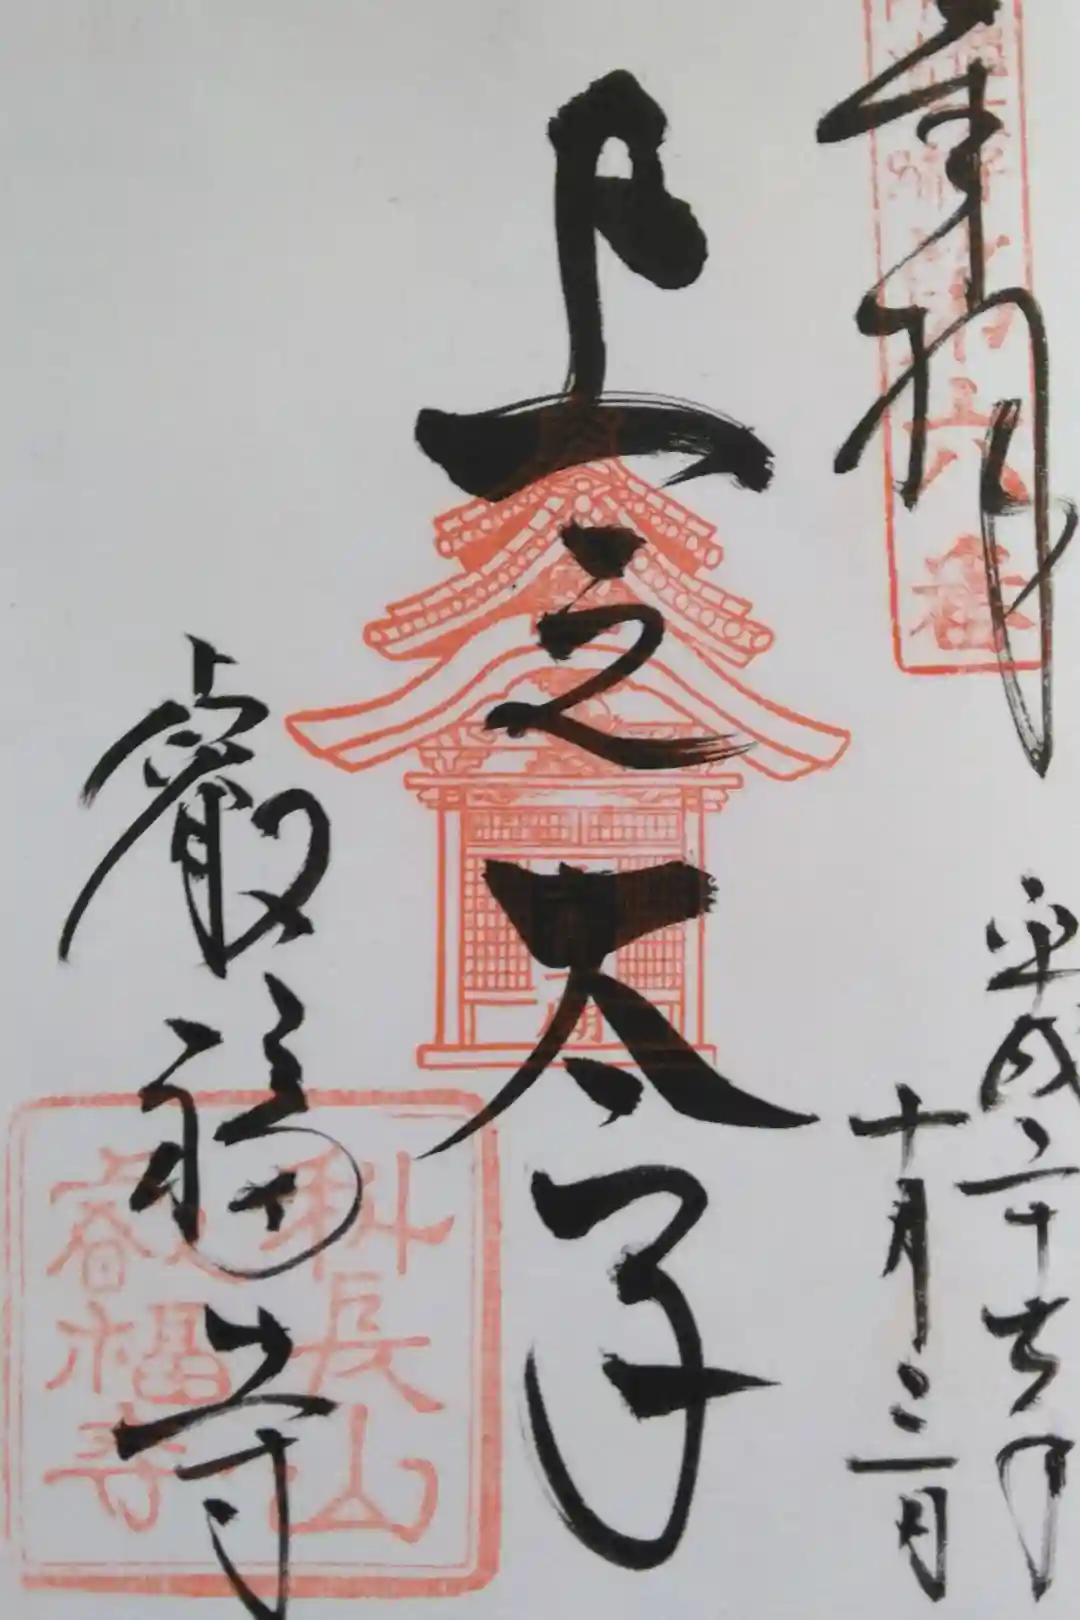 奉拝
平成二十七年
十月三日
上之太子
叡福寺
第六番
科長山
叡福寺